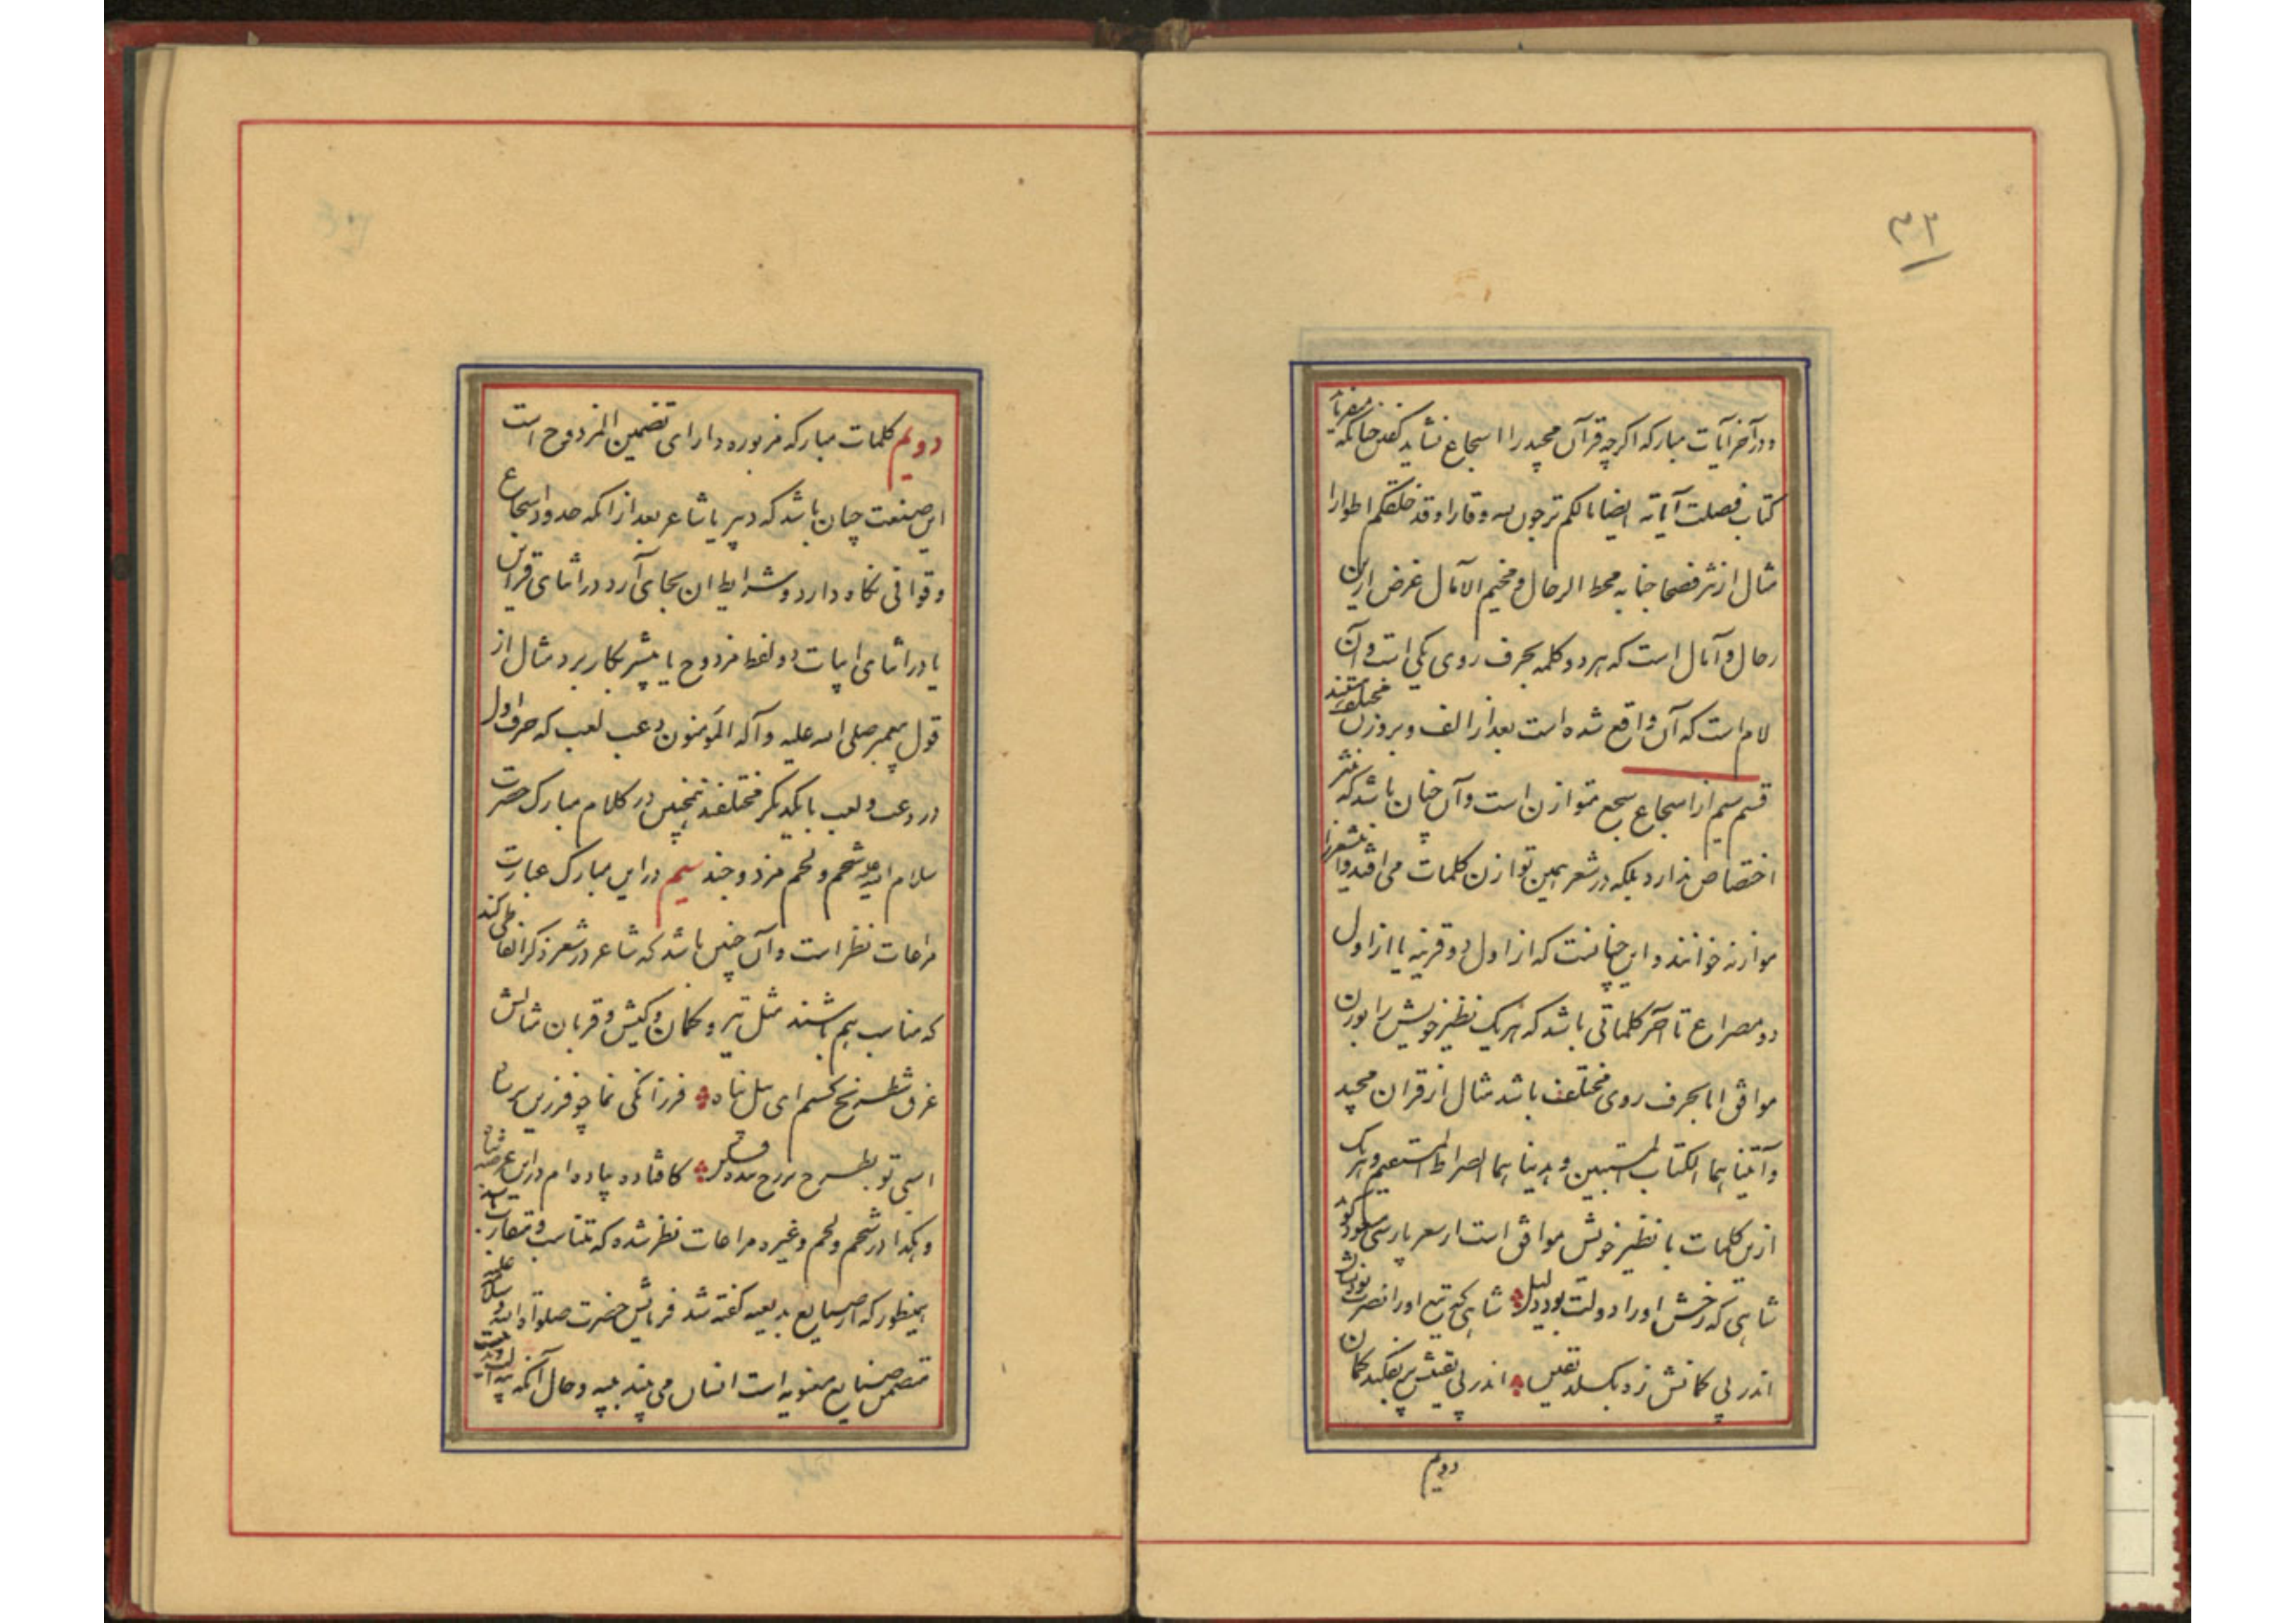 ۳۲
ودر آخر آیات مبارکه اگرچه قرآن مجید را اسجاع نشاید گفتن چنانکه میفرماید
کتاب فصلت آیاته ایضا مالکم ترجون لله وقارا وقد خلقکم اطوارا
مثال از نثر فصحا جنابه محط الرحال و مخیم الآمال غرض ازین
رحال و آمال است که هر دو کلمه بحرف روی یکی است و آن
لام است که آن واقع شده است بعد از الف و بروزن مختلفند
قسم سیم از اسجاع سجع متوازن است و آن چنان باشد که بنثر
اختصاص ندارد بلکه در شعر همین توازن کلمات می افتد و
موازنه خوانند و این چنانست که از اول دو قرینه یا از اول
دو مصراع تا آخر کلماتی باشد که هر یک نظیر خویش را بوزن
موافق اما بحرف روی مختلف باشد مثال از قران مجید
وآتیناهما الکتاب المستبین وهدیناهما الصراط المستقیم و هر یک
ازین کلمات با نظیر خویش موافق است از شعر پارسی مسعود گوید
شاهی که رخش او را دولت بود دلیل شاهی که تیغ او را نصرت بود
اندر پی کمانش زه بگسلد یقین اندر پی یقینش پی بفکند کمان
دویم
دویم کلمات مبارکه مزبوره دارای تضمین المزدوج است
این صنعت چنان باشد که دبیر یا شاعر بعد از آنکه حدود اسجاع
و قوافی نگاه دارد و شرایط ان بجای آرد در اثنای قراین
یا در اثنای ابیات دو لفظ مزدوج یا بیشتر بکار برد مثال از
قول پیغمبر صلی الله علیه و آله المؤمنون دعب لعب که حرف اول
در دعب و لعب با یکدیگر مختلفند همچنین در کلام مبارک حضرت
سلام الله علیه شحم و لحم مزدوجند سیم در این مبارک عبارت
مراعات نظیر است و آن چنین باشد که شاعر در شعر ذکر الفاظی کند
که مناسب هم باشند مثل تیر و کمان و کیش و قربان مثالش
غرق شطرنج فرزانگی نما چو فرزین
اسبی تو بطرح کافتاده پیاده ام در این عرصه
و هکذا در شحم و لحم و غیره مراعات نظیر شده که متناسب و متقاربند
بهمینطور که از صنایع بدیعیه گفته شد فرمایش حضرت صلوات الله و سلامه علیه
متضمن صنایع معنویه است انسان می بیند به پیه و حال آنکه پیه